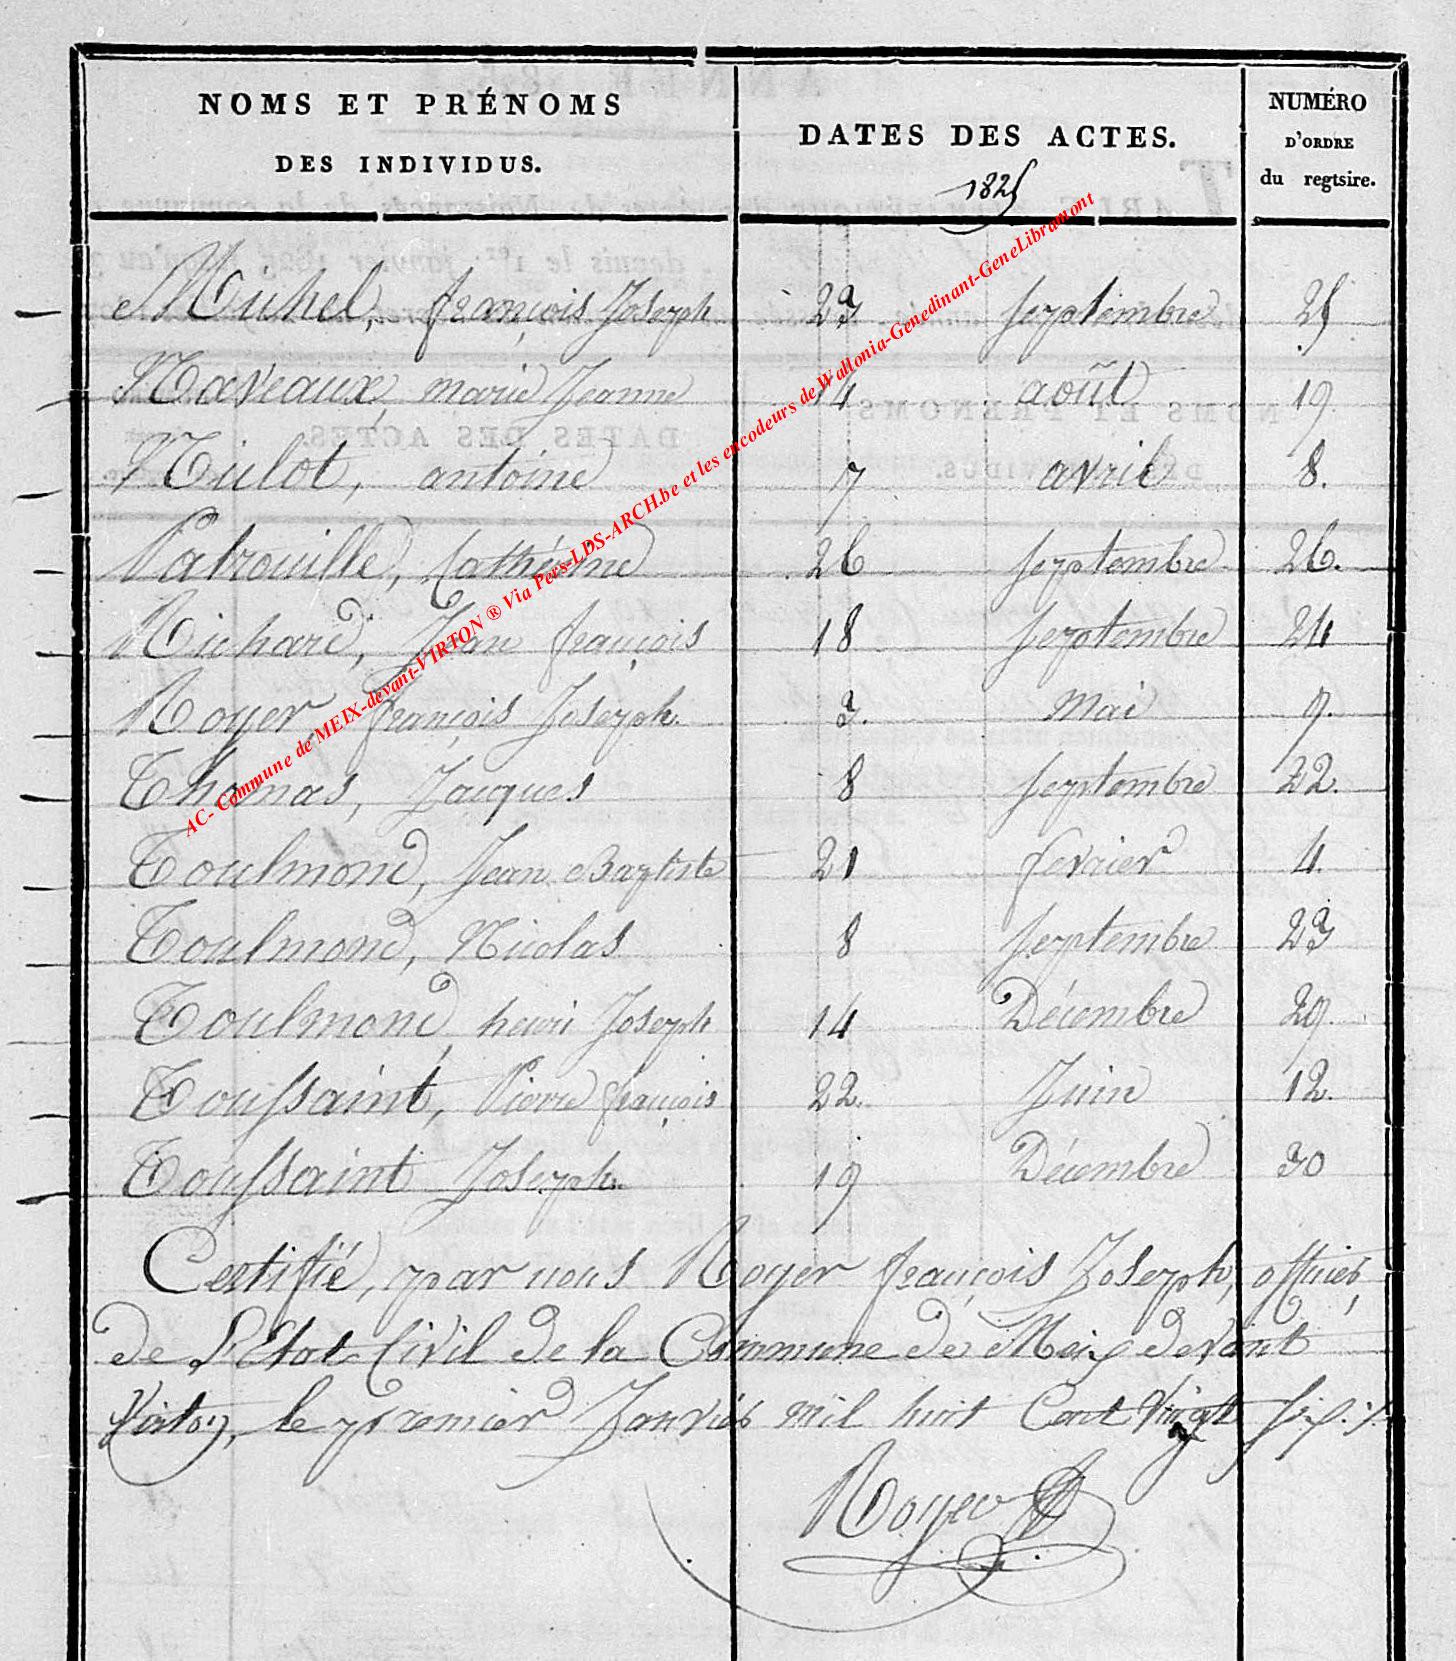 NOMS ET PRÉNOMS
DES INDIVIDUS.
DATES DES ACTES.
1825
NUMÉRO
D'ORDRE
du regtsire.
Michel, françois Joseph 23 septembre 25
Naveaux, marie Jeanne 14 août 19
Nulot, antoine 7 avril 8.
Patrouille, Cathérine 26 septembre 26.
Richard, Jean françois 18 septembre 24
Royer, françois Joseph 3. mai 9.
Thomas, Jacques 8 septembre 22.
Toulmond, Jean Baptiste 21 fevrier 4.
Toulmond, Nicolas 8 septembre 23
Toulmond, henri Joseph 14 Décembre 29
Toussaint, Pierre françois 22. Juin 12.
Toussaint Joseph 19 Décembre 30
Certifié, par nous Royer françois Joseph, officier,
de l'Etat Civil de la Commune de Meix devant
Virton, le premier Janvier mil huit Cent Vingt six.
Royer
AC- Commune de MEIX-devant-VIRTON ® Via Pers-LDS-ARCH.be et les encodeurs de Wallonia-Genedinant-GeneLibramont